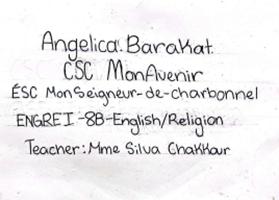 Angelica.Barakat.
CSC MonAvenir
ÉSC MonSeigneur-de-charbonnel
ENGREI-8B-English/Religion
Teacher: Mme Silva Chakkour